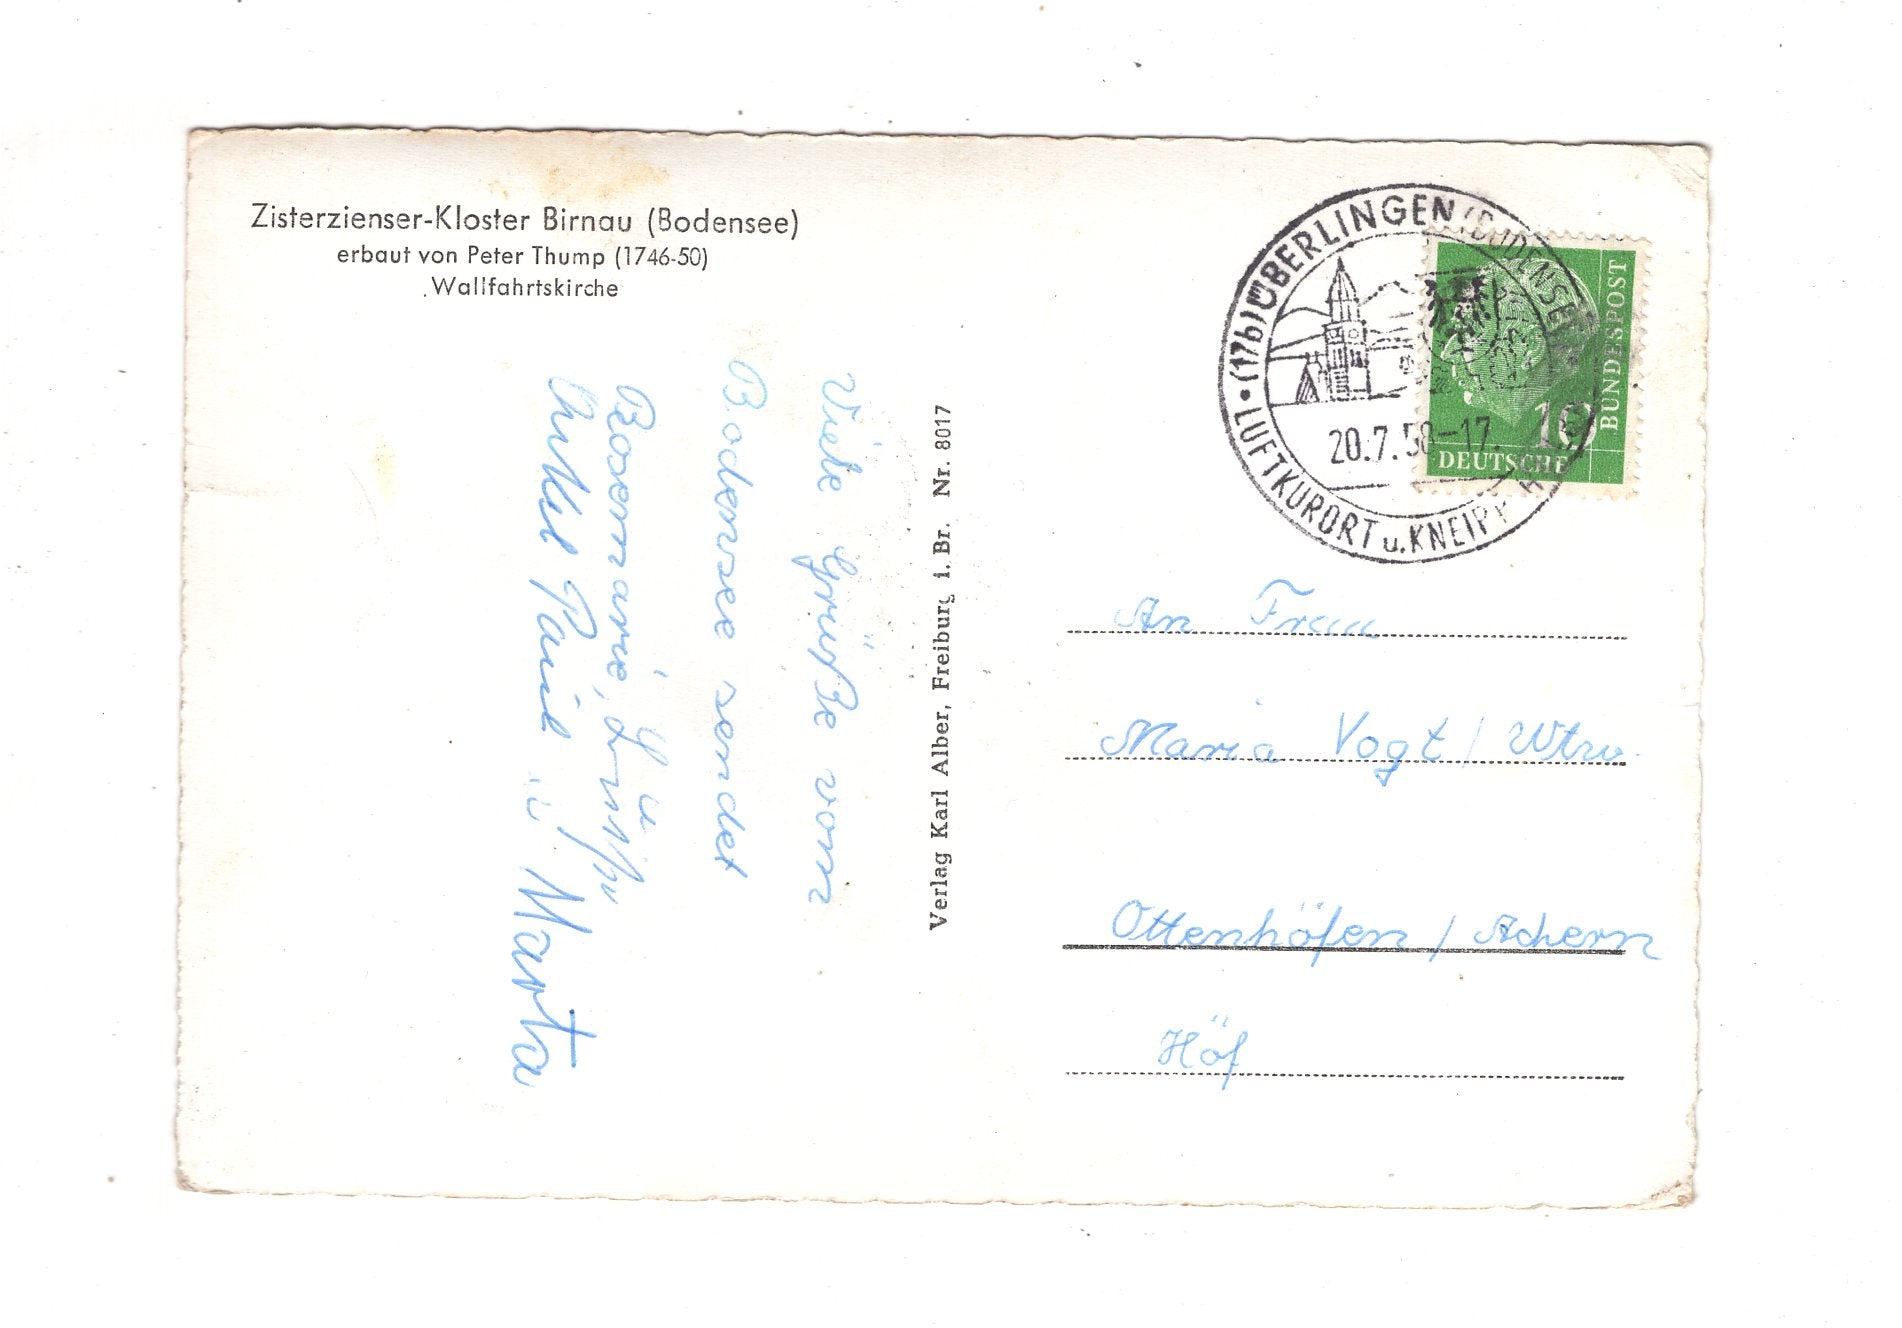 Zisterzienser-Kloster Birnau (Bodensee)
erbaut von Peter Thump (1746-50)
Wallfahrtskirche
Viele Grüße vom
Bodensee sendet
Onkel Paul u Marta
Verlag Karl Alber, Freiburg i. Br. Nr. 8017
(17b) ÜBERLINGEN (BODENSEE)
20.7.58-17
LUFTKURORT u. KNEIPP
10
DEUTSCHE
BUNDESPOST
An Frau
Maria Vogt / Wtw.
Ottenhöfen / Achern
Höf